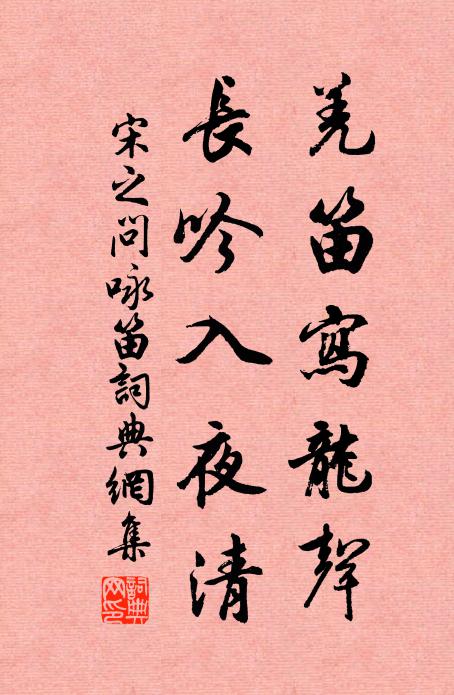 羌笛寫龍聲
長吟入夜清
宋之問咏笛詞典網集
詞典網印